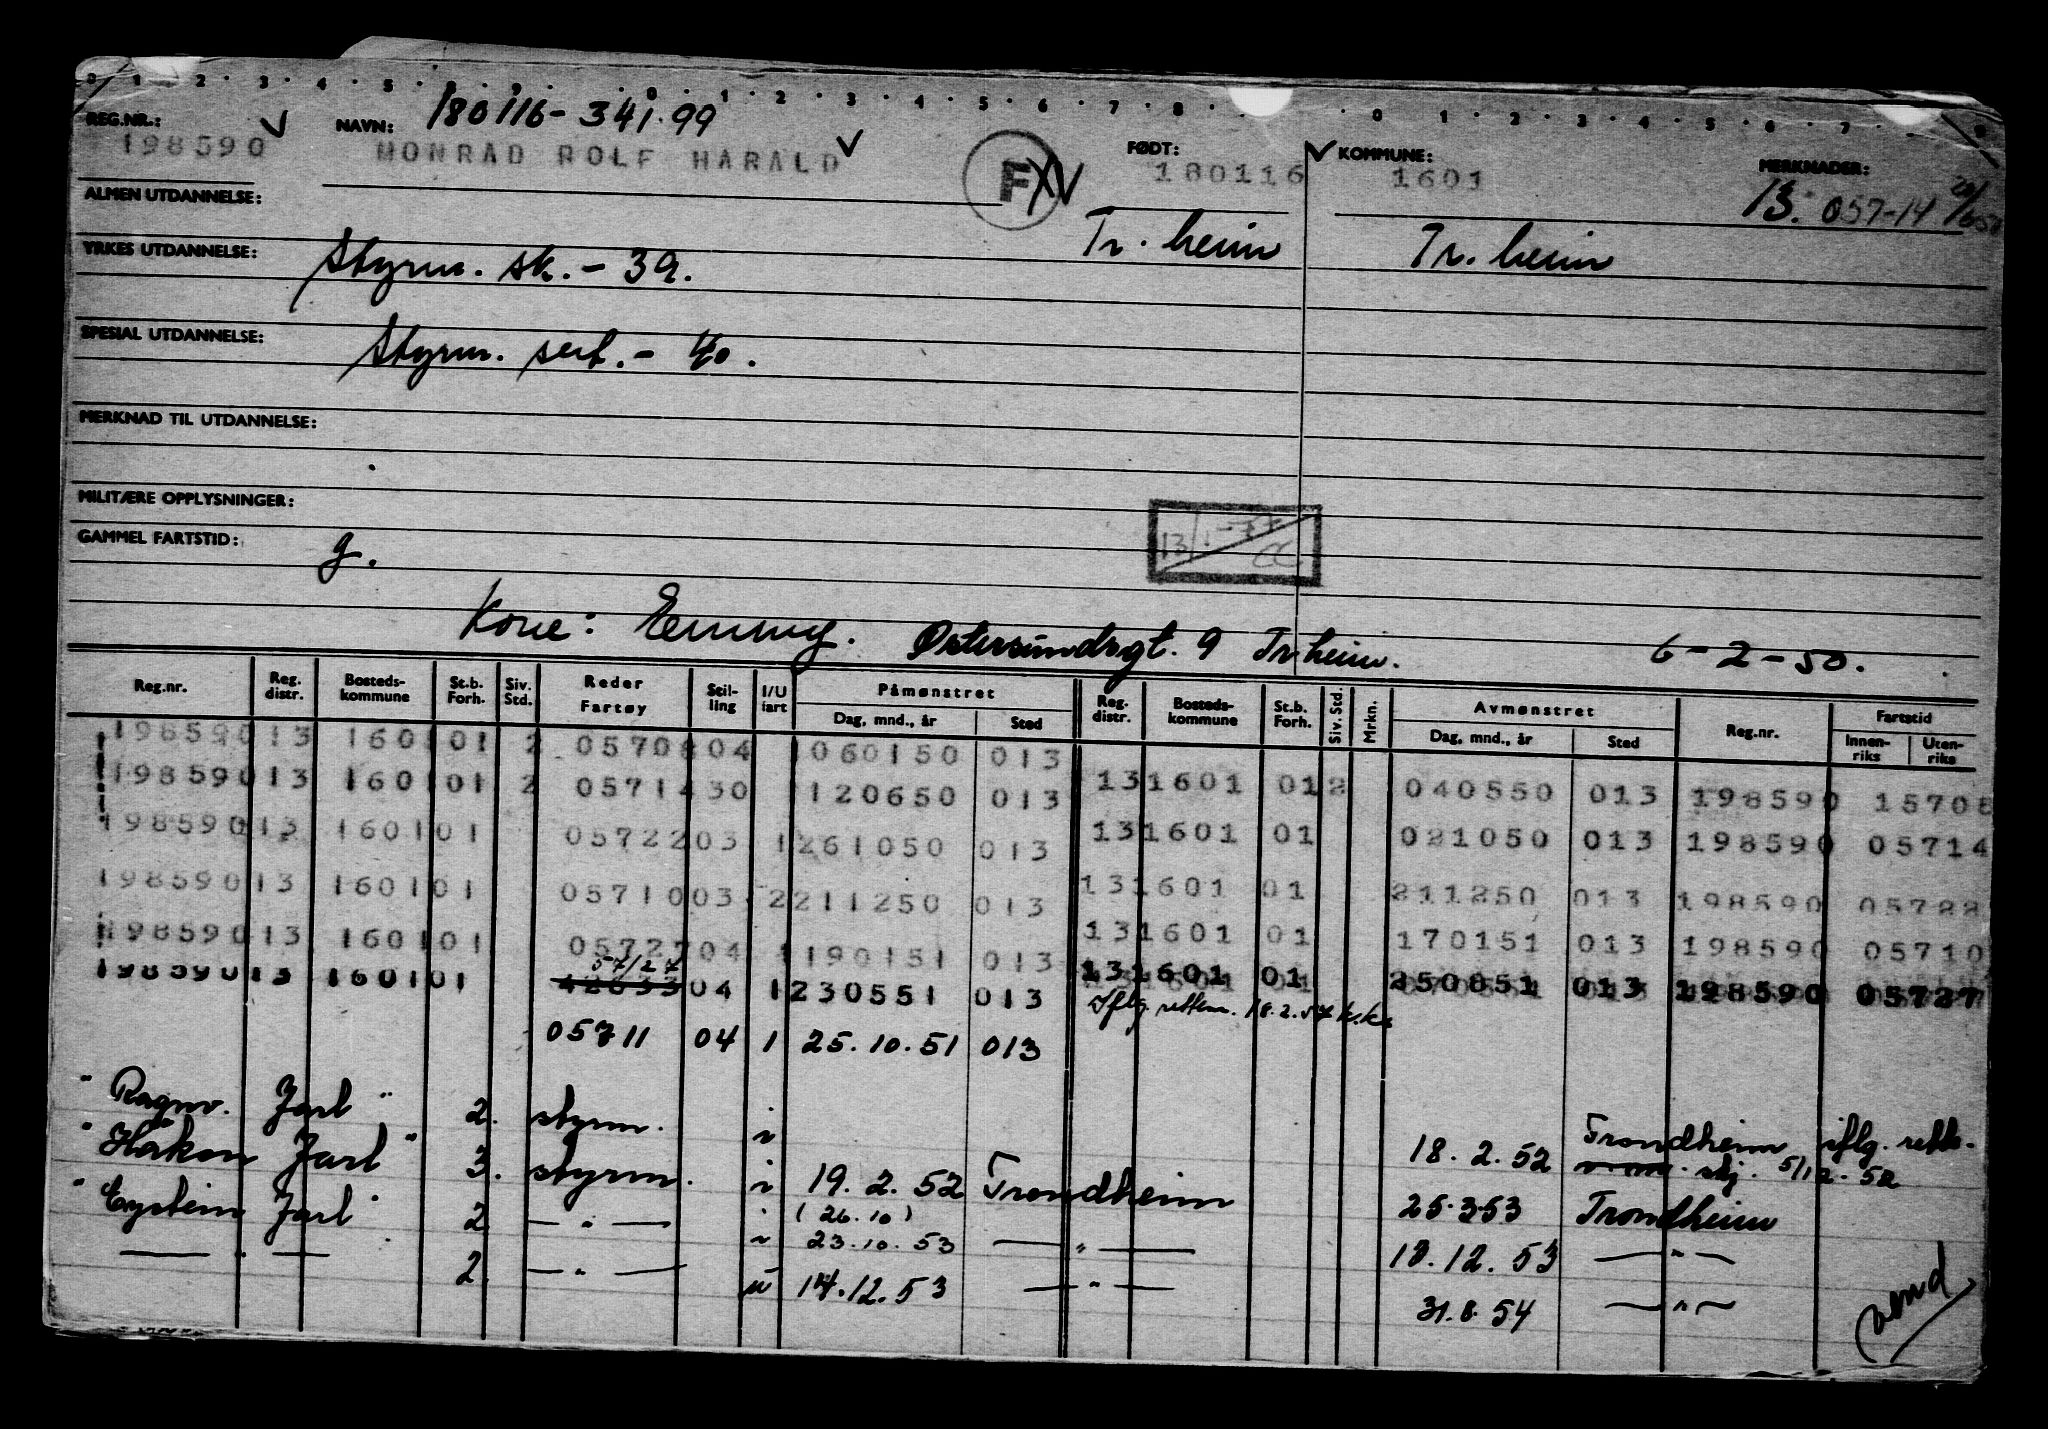 0 1 2 3 4 5 0 1 2 3 4 5 6 7 8 0 1 2 3 4 5 6 7
REG.NR.: 198590 NAVN: 180116-341.99
MONRAD ROLF HARALD F FØDT: 180116 KOMMUNE: 1601 MERKNADER: 13. 057-14
ALMEN UTDANNELSE: Tr. heim Tr. heim
YRKES UTDANNELSE: Styrm. sk. - 39.
SPESIAL UTDANNELSE: Styrm. sert. - 40.
MERKNAD TIL UTDANNELSE:
MILITÆRE OPPLYSNINGER:
GAMMEL FARTSTID: g.
Kone: Emmy. Østersundsgt. 9 Tr.heim. 6-2-50.
Reg.nr. Reg. distr. Bosteds-kommune St.b. Forh. Siv. Std. Reder Fartøy Stil-ling I/U fart Påmønstret Dag, mnd., år Sted Reg. distr. Bosteds-kommune St.b. Forh. Siv. Std. Mrkn. Avmønstret Dag, mnd., år Sted Reg.nr. Fartstid Innen-riks Uten-riks
198590 13 1601 01 2 05708 04 1 060150 013
198590 13 1601 01 2 05714 30 1 120650 013 13 1601 01 2 040550 013 198590 15708
198590 13 1601 01 05722 03 1 261050 013 13 1601 01 021050 013 198590 05714
198590 13 1601 01 05710 03 2 211250 013 13 1601 01 211250 013 198590 05722
198590 13 1601 01 05727 04 1 190151 013 13 1601 01 170151 013 198590 05710
57/27
198590 13 1601 01 42633 04 1 230551 013 13 1601 01 013 198590 05727
Iflg. rettem. 18.2.57 k.k.
05711 04 1 25.10.51 013
"Ragnv. Jarl" 2. styrm. i 18.2.52 Trondheim iflg. rette-
skj. 5/12.52
"Håkon Jarl" 3. styrm. i 19.2.52 Trondheim 25.3.53 Trondheim
(26.10)
"Eystein Jarl" 2 — " — i 23.10.53 — " — 13.12.53 — " —
— " — 2. — " — u 14.12.53 — " — 31.8.54 — " —